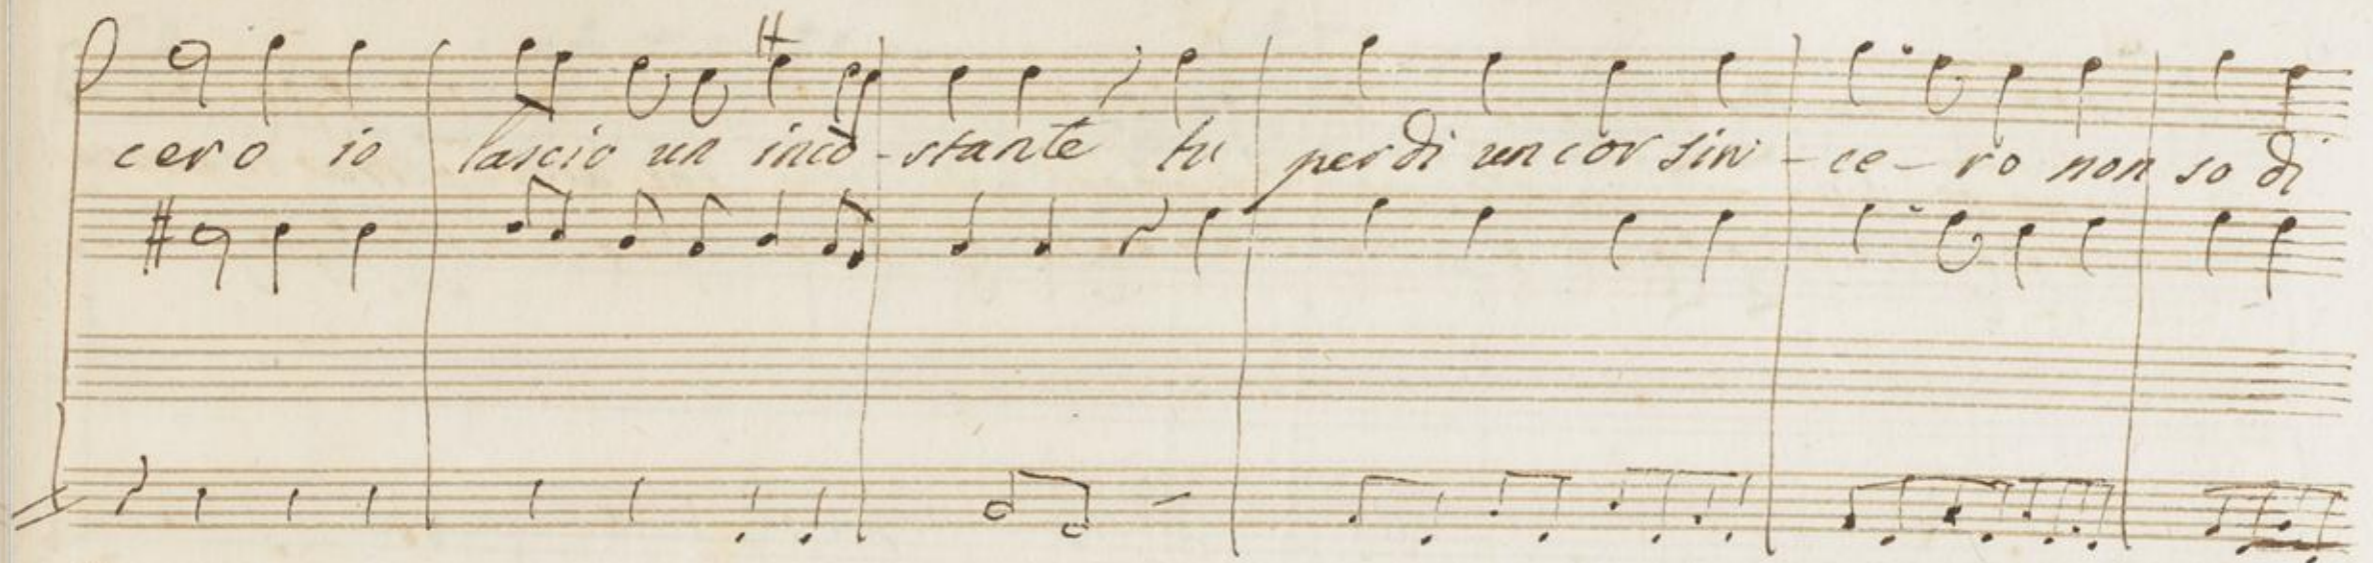 cero io lascio un inco-stante tu perdi un cor sin-ce-ro non so di